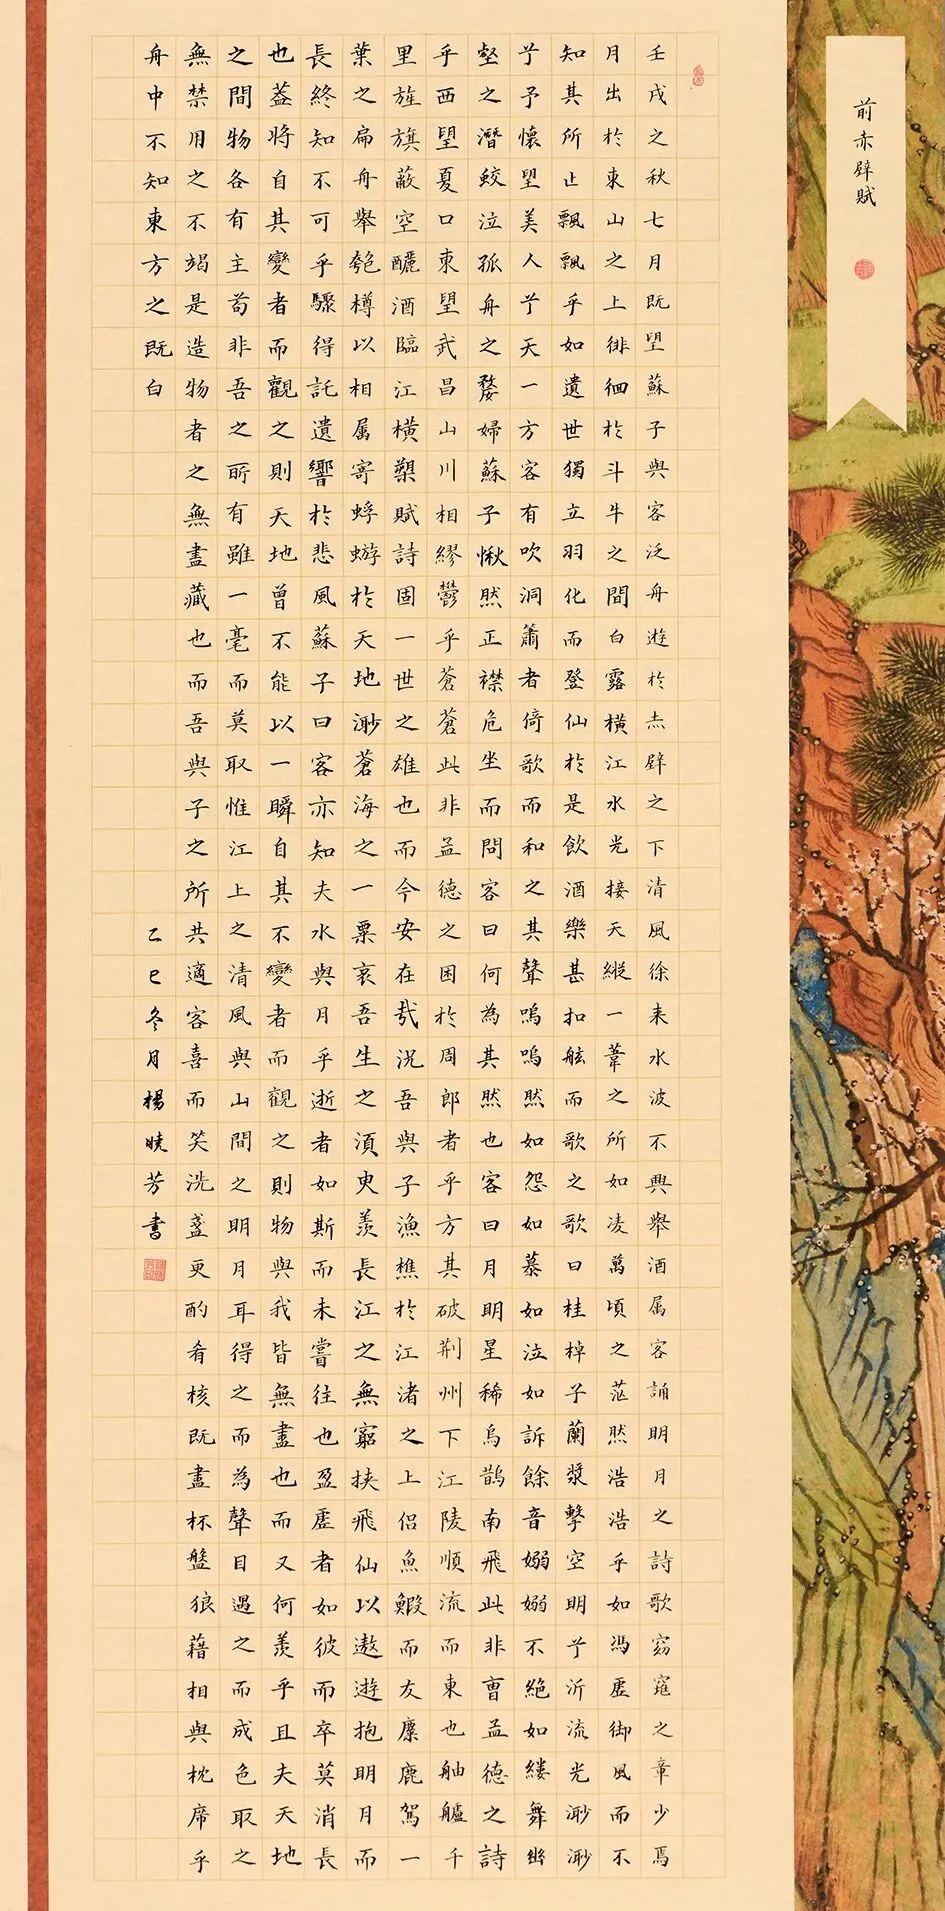 前赤壁賦
壬戌之秋七月既望蘇子與客泛舟遊於赤壁之下清風徐来水波不興舉酒属客誦明月之詩歌窈窕之章少焉
月出於東山之上徘徊於斗牛之間白露橫江水光接天縱一葦之所如凌萬頃之茫然浩浩乎如馮虛御風而不
知其所止飄飄乎如遺世獨立羽化而登仙於是飲酒樂甚扣舷而歌之歌曰桂棹子蘭槳擊空明兮沂流光渺渺
兮予懷望美人兮天一方客有吹洞簫者倚歌而和之其聲嗚嗚然如怨如慕如泣如訴餘音嫋嫋不絕如縷舞幽
壑之潛蛟泣孤舟之嫠婦蘇子愀然正襟危坐而問客曰何為其然也客曰月明星稀烏鵲南飛此非曹孟德之詩
乎西望夏口東望武昌山川相繆鬱乎蒼蒼此非孟德之困於周郎者乎方其破荊州下江陵順流而東也舳艫千
里旌旗蔽空釃酒臨江橫槊賦詩固一世之雄也而今安在哉況吾與子漁樵於江渚之上侶魚鰕而友麋鹿駕一
葉之扁舟舉匏樽以相属寄蜉蝣於天地渺蒼海之一粟哀吾生之須臾羨長江之無窮挾飛仙以遨遊抱明月而
長終知不可乎驟得託遺響於悲風蘇子曰客亦知夫水與月乎逝者如斯而未嘗往也盈虛者如彼而卒莫消長
也蓋將自其變者而觀之則天地曾不能以一瞬自其不變者而觀之則物與我皆無盡也而又何羨乎且夫天地
之間物各有主苟非吾之所有雖一毫而莫取惟江上之清風與山間之明月耳得之而為聲目遇之而成色取之
無禁用之不竭是造物者之無盡藏也而吾與子之所共適客喜而笑洗盞更酌肴核既盡杯盤狼藉相與枕席乎
舟中不知東方之既白
乙巳冬月楊曉芳書